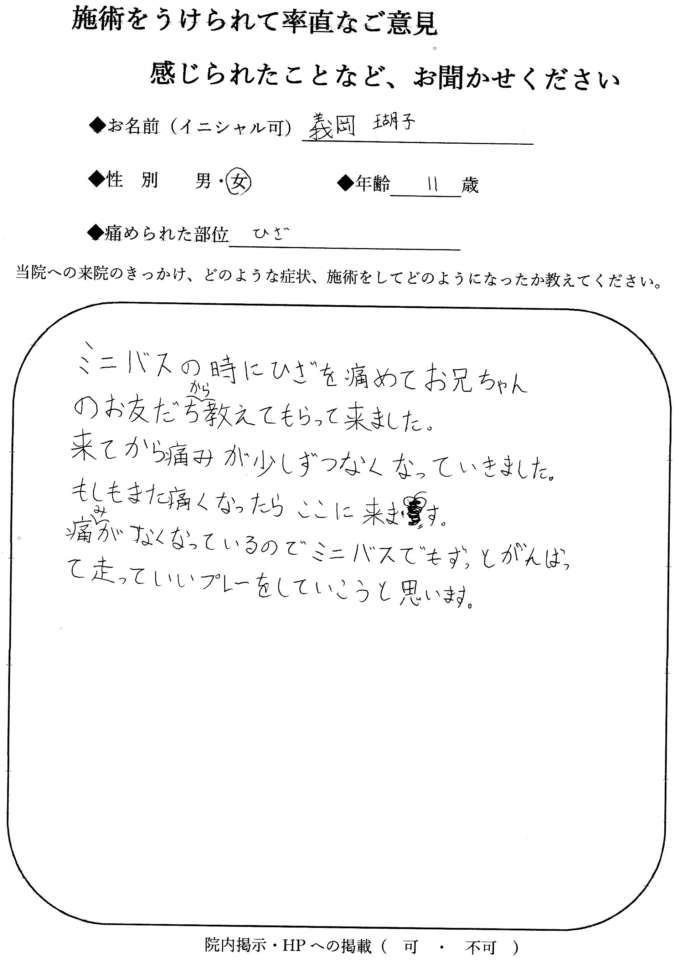 施術をうけられて率直なご意見
感じられたことなど、お聞かせください
◆お名前（イニシャル可） 義岡 瑚子
◆性　別　　男・女　　◆年齢 11 歳
◆痛められた部位 ひざ
当院への来院のきっかけ、どのような症状、施術をしてどのようになったか教えてください。
ミニバスの時にひざを痛めてお兄ちゃん
のお友だちから教えてもらって来ました。
来てから痛みが少しずつなくなっていきました。
もしもまた痛くなったらここに来ます。
痛みがなくなっているのでミニバスでもずっとがんばっ
て走っていいプレーをしていこうと思います。
院内掲示・HPへの掲載（　可　・　不可　）